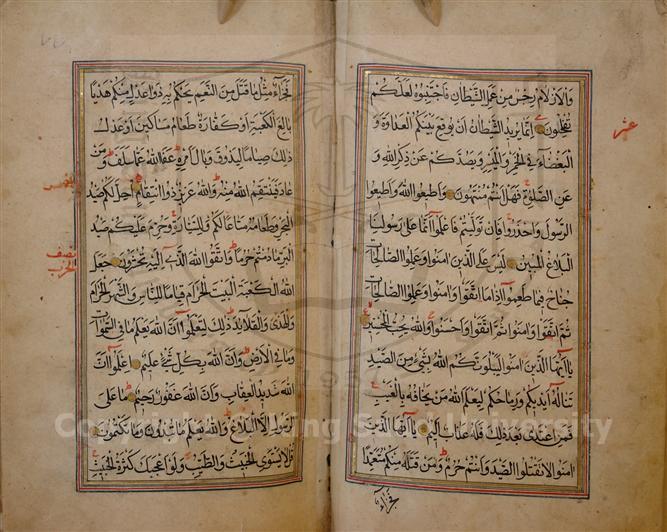 والازلام رجس من عمل الشيطان فاجتنبوه لعلكم
تفلحون انما يريد الشيطان ان يوقع بينكم العداوة و
البغضاء في الخمر والميسر ويصدكم عن ذكر الله و
عن الصلوة فهل انتم منتهون واطيعوا الله واطيعوا
الرسول واحذروا فان توليتم فاعلموا انما على رسولنا
البلاغ المبين ليس على الذين امنوا وعملوا الصالحات
جناح فيما طعموا اذا ما اتقوا وامنوا وعملوا الصالحات
ثم اتقوا وامنوا ثم اتقوا واحسنوا والله يحب المحسنين
يا ايها الذين امنوا ليبلونكم الله بشيء من الصيد
تناله ايديكم ورماحكم ليعلم الله من يخافه بالغيب
فمن اعتدى بعد ذلك فله عذاب اليم يا ايها الذين
امنوا لا تقتلوا الصيد وانتم حرم ومن قتله منكم متعمدا
فجزاء
عشر
فجزاء مثل ما قتل من النعم يحكم به ذوا عدل منكم هديا
بالغ الكعبة او كفارة طعام مساكين او عدل
ذلك صياما ليذوق وبال امره عفا الله عما سلف ومن
عاد فينتقم الله منه والله عزيز ذو انتقام احل لكم صيد
البحر وطعامه متاعا لكم وللسيارة وحرم عليكم صيد
البر ما دمتم حرما واتقوا الله الذي اليه تحشرون جعل
الله الكعبة البيت الحرام قياما للناس والشهر الحرام
والهدى والقلائد ذلك لتعلموا ان الله يعلم ما في السموات
وما في الارض وان الله بكل شيء عليم اعلموا ان
الله شديد العقاب وان الله غفور رحيم ما على
الرسول الا البلاغ والله يعلم ما تبدون وما تكتمون
قل لا يستوي الخبيث والطيب ولو اعجبك كثرة الخبيث
نصف
الحزب
Copyright © King Saud University